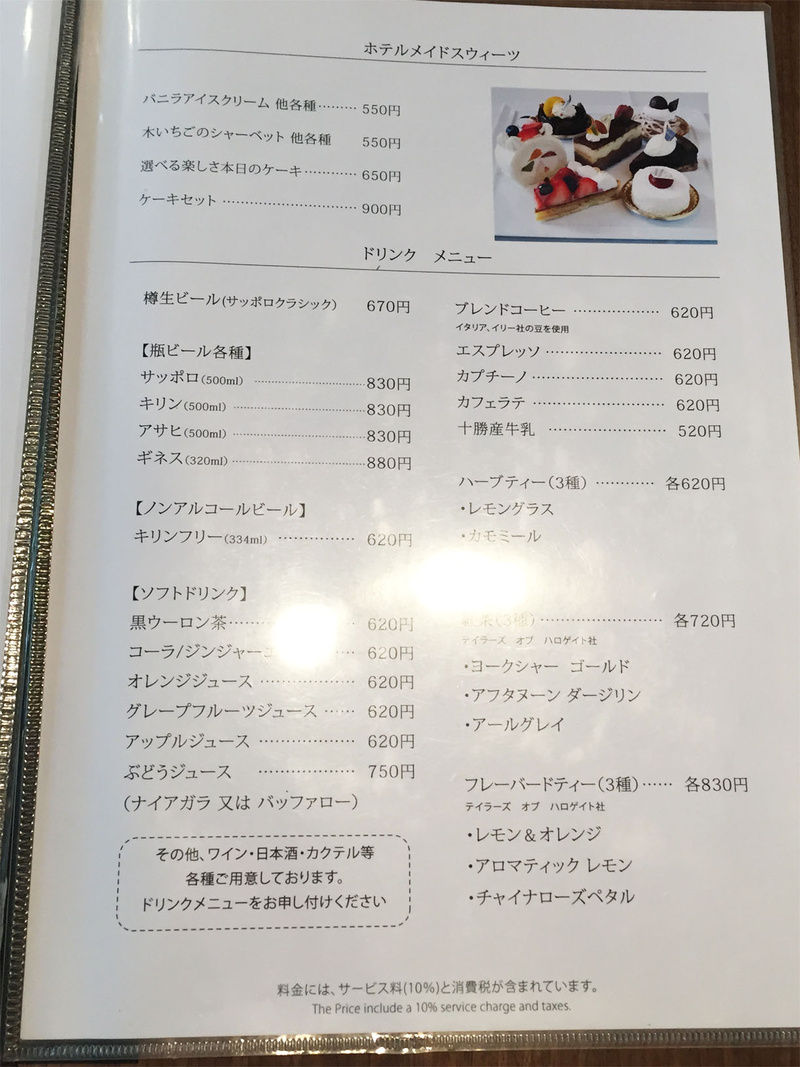 ホテルメイドスウィーツ
バニラアイスクリーム 他各種……… 550円
木いちごのシャーベット 他各種 550円
選べる楽しさ本日のケーキ………… 650円
ケーキセット …………………… 900円
ドリンク メニュー
樽生ビール(サッポロクラシック) 670円
【瓶ビール各種】
サッポロ(500ml) ……………………830円
キリン(500ml) ……………………830円
アサヒ(500ml) ……………………830円
ギネス(320ml) ……………………880円
【ノンアルコールビール】
キリンフリー(334ml) …………… 620円
【ソフトドリンク】
黒ウーロン茶…………… 620円
コーラ/ジンジャー…… 620円
オレンジジュース ……………… 620円
グレープフルーツジュース …… 620円
アップルジュース ……………… 620円
ぶどうジュース ……………… 750円
(ナイアガラ 又は バッファロー)
その他、ワイン・日本酒・カクテル等
各種ご用意しております。
ドリンクメニューをお申し付けください
ブレンドコーヒー ………………… 620円
イタリア、イリー社の豆を使用
エスプレッソ ……………………… 620円
カプチーノ ………………………… 620円
カフェラテ ………………………… 620円
十勝産牛乳 ……………………… 520円
ハーブティー(3種) ………… 各620円
・レモングラス
・カモミール
(3種) ……………………… 各720円
テイラーズ オブ ハロゲイト社
・ヨークシャー ゴールド
・アフタヌーン ダージリン
・アールグレイ
フレーバードティー(3種)…… 各830円
テイラーズ オブ ハロゲイト社
・レモン＆オレンジ
・アロマティック レモン
・チャイナローズペタル
料金には、サービス料(10%)と消費税が含まれています。
The Price include a 10% service charge and taxes.